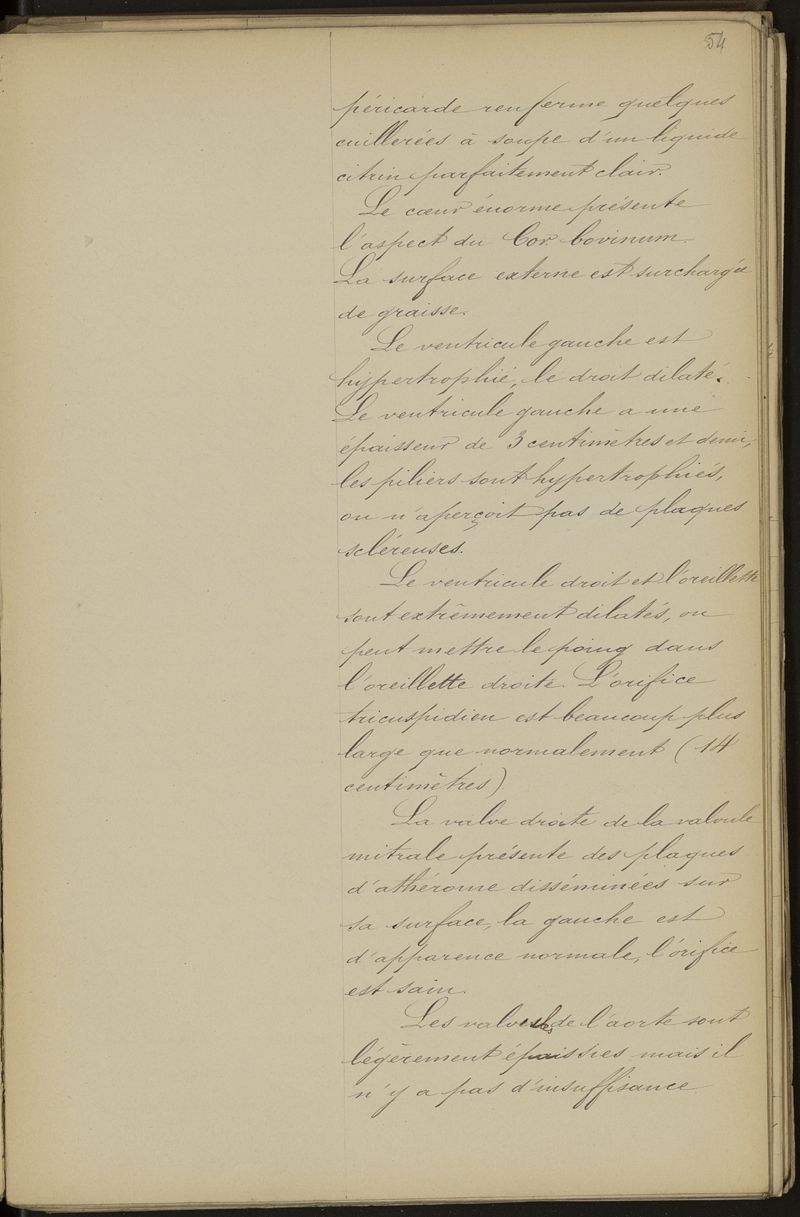 54
péricarde renferme quelques
cuillerées à soupe d'un liquide
citrin parfaitement clair.
Le cœur énorme présente
l'aspect du Cor bovinum.
La surface externe est surchargée
de graisse.
Le ventricule gauche est
hypertrophié, le droit dilaté.
Le ventricule gauche a une
épaisseur de 3 centimètres et demi,
les piliers sont hypertrophiés,
on n'aperçoit pas de plaques
scléreuses.
Le ventricule droit et l'oreillette
sont extrêmement dilatés, on
peut mettre le poing dans
l'oreillette droite. L'orifice
tricuspidien est beaucoup plus
large que normalement (14
centimètres)
La valve droite de la valvule
mitrale présente des plaques
d'athérome disséminées sur
sa surface, la gauche est
d'apparence normale, l'orifice
est sain.
Les valvules de l'aorte sont
légèrement épaissies mais il
n'y a pas d'insuffisance